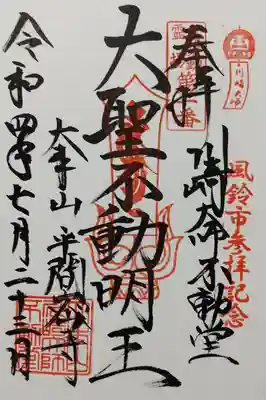 川崎大師
風鈴市参拝記念
奉拝
川崎大師不動堂
霊場第一番
大聖不動明王
大本山 平間寺
令和四年七月二十三日